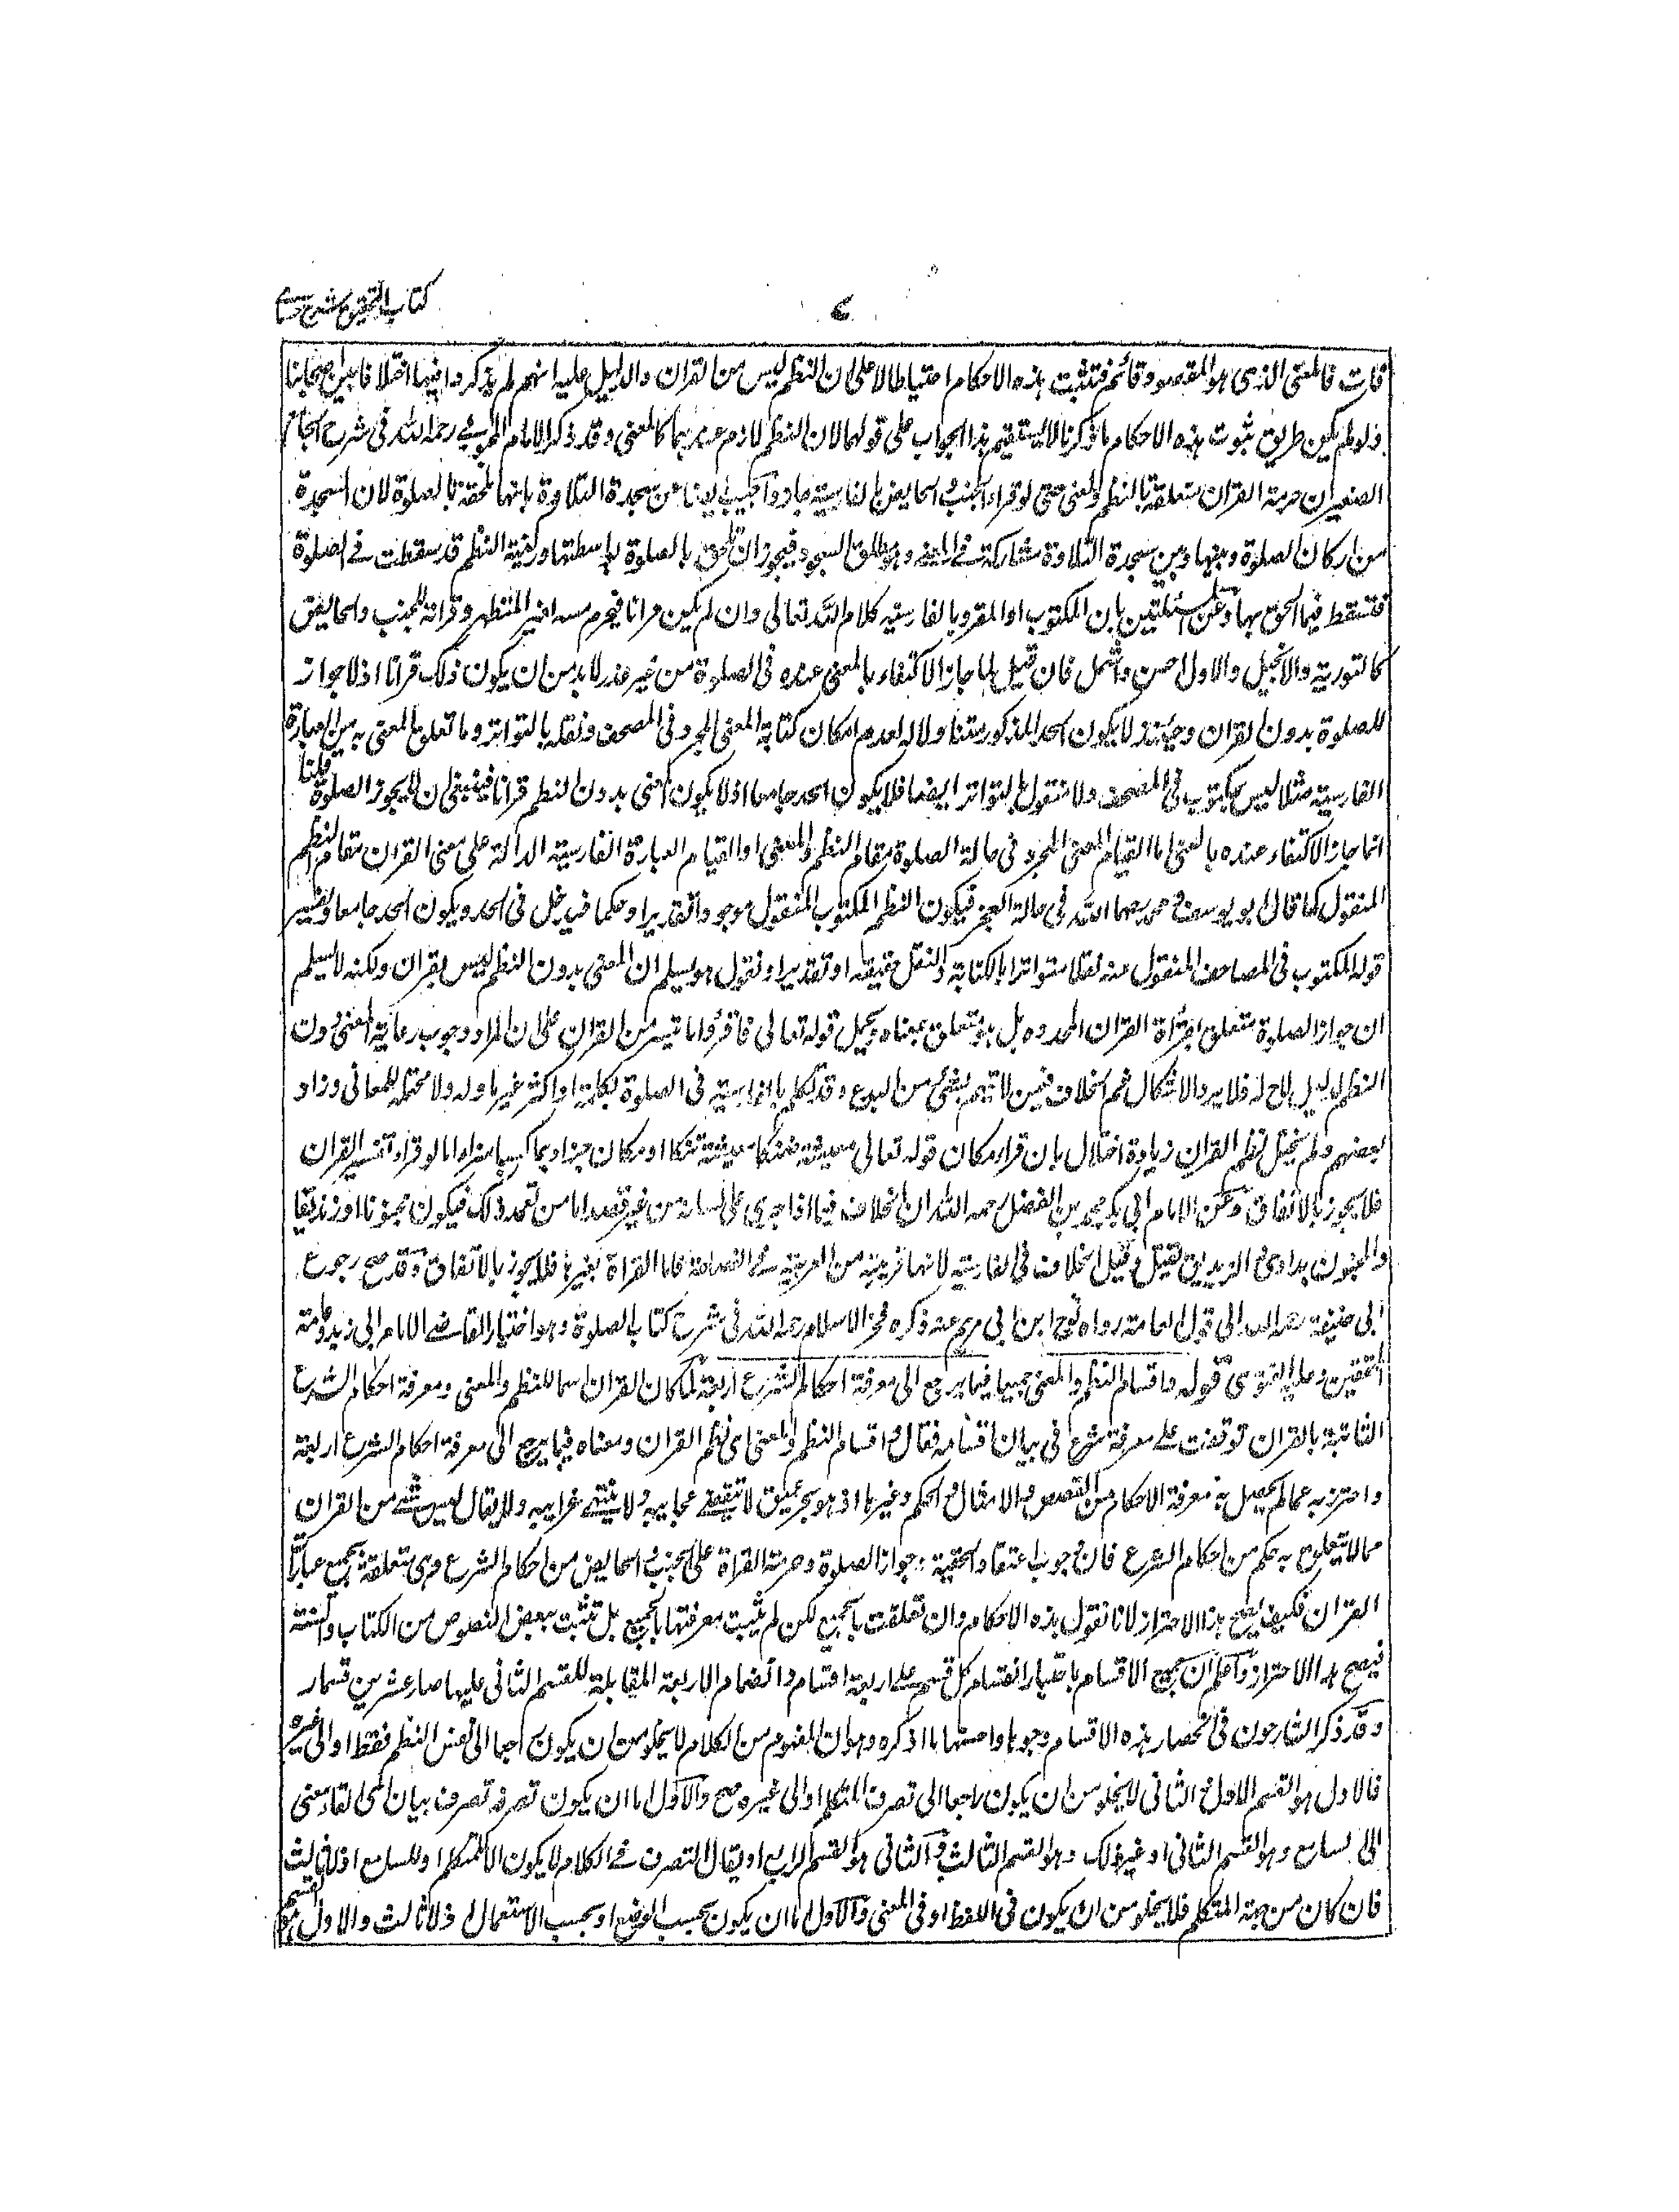 كتاب التحقيق شرح حسامي
٧
فات فالمعنى الذى هو المقصود قائم فتثبت هذه الاحكام احتياطا لا على ان النظم ليس من القران والدليل عليه انهم لم يذكروا فيها اختلافا بين اصحابنا
ولو لم يكن طريق ثبوت هذه الاحكام ما ذكرنا لا يستقيم هذا الجواب على قولهما لان النظم لازم عندهما كالمعنى وقد ذكر الامام المحبوبي رحمه الله فى شرح الجامع
الصغير ان حرمة القران متعلقة بالنظم والمعنى حتى لو قراء الجنب والحايض بالفارسية جاز واجيب ايضا عن سجدة التلاوة بانها ملحقة بالصلوة لان السجدة
من اركان الصلوة وبينها وبين سجدة التلاوة مشاركة في المعنى وهو مطلق السجود فيجوز ان تلحق بالصلوة بواسطتها وركنية النظم قد سقطت في الصلوة
فتسقط فيما الحق بها وعن المسئلتين بان المكتوب او المقرو بالفارسية كلام الله تعالى وان لم يكن قرانا فيحرم مسه لغير المتطهر وقراته للجنب والحايض
كالتورية والانجيل والاول احسن واشمل فان قيل لما جاز الاكتفاء بالمعنى عنده فى الصلوة من غير عذر لا بد من ان يكون ذلك قرانا اذ لا جواز
للصلوة بدون القران وحينئذ لا يكون الحد المذكور متناولا له لعدم امكان كتابة المعنى المجرد فى المصحف ونقله بالتواتر وما تعلق المعنى به من العبارة
الفارسية مثلا ليس بمكتوب فى المصحف ولا منقول بالتواتر ايضا فلا يكون الحد جامعا اذ لا يكون المعنى بدون النظم قرانا فينبغى ان لا يجوز الصلوة قلنا
انما جاز الاكتفاء عنده بالمعنى اما لقيام المعنى المجرد فى حالة الصلوة مقام النظم والمعنى او لقيام العبارة الفارسية الدالة على معنى القران مقام النظم
المنقول كما قال ابو يوسف ومحمد رحمهما الله فى حالة العجز فيكون النظم المكتوب المنقول موجودا تقديرا وحكما فيدخل فى الحد ويكون الحد جامعا وتفسير
قوله المكتوب فى المصاحف المنقول عنه نقلا متواترا بالكتابة والنقل حقيقة او تقديرا ونقول هو يسلم ان المعنى بدون النظم ليس بقران ولكنه لا يسلم
ان جواز الصلوة متعلق بقراة القران المحدود بل هو متعلق بمعناه ويحمل قوله تعالى فاقرؤا ما تيسر من القران على ان المراد وجوب رعاية المعنى دون
النظم لدليل لاح له فلا يرد الاشكال ثم الخلاف فيمن لا يتهم بشئ من البدع وقد تكلم بالفارسية فى الصلوة بكلمة او اكثر غير ماولة ولا محتملة للمعانى وزاد
بعضهم ولم يختل نظم القران زيادة اختلال بان قراء مكان قوله تعالى معيشة ضنكا معيشة تنكا او مكان جزاء بما كسبا سزاء اما لو قراء تفسير القران
فلا يجوز بالاتفاق وعن الامام ابى بكر محمد بن الفضل رحمه الله ان الخلاف فيما اذا جرى على لسانه من غير قصد اما من تعمد ذلك فيكون مجنونا او زنديقا
والمجنون يداوى والزنديق يقتل وقيل الخلاف فى الفارسية لانها قريبة من العربية في الفصاحة فاما القراة بغيرها فلا يجوز بالاتفاق وقد صح رجوع
ابى حنيفة رحمه الله الى قول العامة رواه نوح ابن ابى مريم عنه ذكره فخر الاسلام رحمه الله فى شرح كتاب الصلوة وهو اختيار القاضى الامام ابى زيد وعامة
المحققين وعليه الفتوى قوله واقسام النظم والمعنى جميعا فيما يرجع الى معرفة احكام الشرع اربعة لما كان القران اسما للنظم والمعنى ومعرفة احكام الشرع
الثابتة بالقران توقفت على معرفة شرع فى بيان اقسامه فقال واقسام النظم والمعنى اى نظم القران ومعناه فيما يرجع الى معرفة احكام الشرع اربعة
واحترز به عما لم يحصل به معرفة الاحكام من القصص والامثال والحكم وغيرها اذ هو بحر عميق لا تنقضى عجايبه ولا ينتهى غرايبه ولا يقال ليس شئ من القران
مما لا يتعلق به حكم من احكام الشرع فان وجوب اعتقاد الحقية وجواز الصلوة وحرمة القراة على الجنب والحايض من احكام الشرع وهى متعلقة بجميع عبارات
القران فكيف يصح هذا الاحتراز لانا نقول هذه الاحكام وان تعلقت بالجميع لكن لم يثبت معرفتها بالجميع بل تثبت ببعض النصوص من الكتاب والسنة
فيصح هذا الاحتراز واعلم ان جميع الاقسام باعتبار انقسام كل قسم على اربعة اقسام وانضمام الاربعة المقابلة للقسم الثانى عليها صار عشرين قسما
وقد ذكر الشارحون فى انحصار هذه الاقسام وجوها واحسنها ما اذكره وهو ان المفهوم من الكلام لا يخلو من ان يكون راجعا الى نفس النظم فقط او الى غيره
فالاول هو القسم الاول والثانى لا يخلو من ان يكون راجعا الى تصرف المتكلم او الى غيره والاول اما ان يكون تصرفه تصرف بيان اى القاء معنى
الى السامع وهو القسم الثانى او غير ذلك وهو القسم الثالث والثانى هو القسم الرابع او يقال التصرف فى الكلام لا يكون الا للمتكلم او للسامع اذ لا ثالث
فان كان من جهة المتكلم فلا يخلو من ان يكون فى اللفظ او فى المعنى والاول اما ان يكون بحسب الوضع او بحسب الاستعمال اذ لا ثالث والاول هو القسم